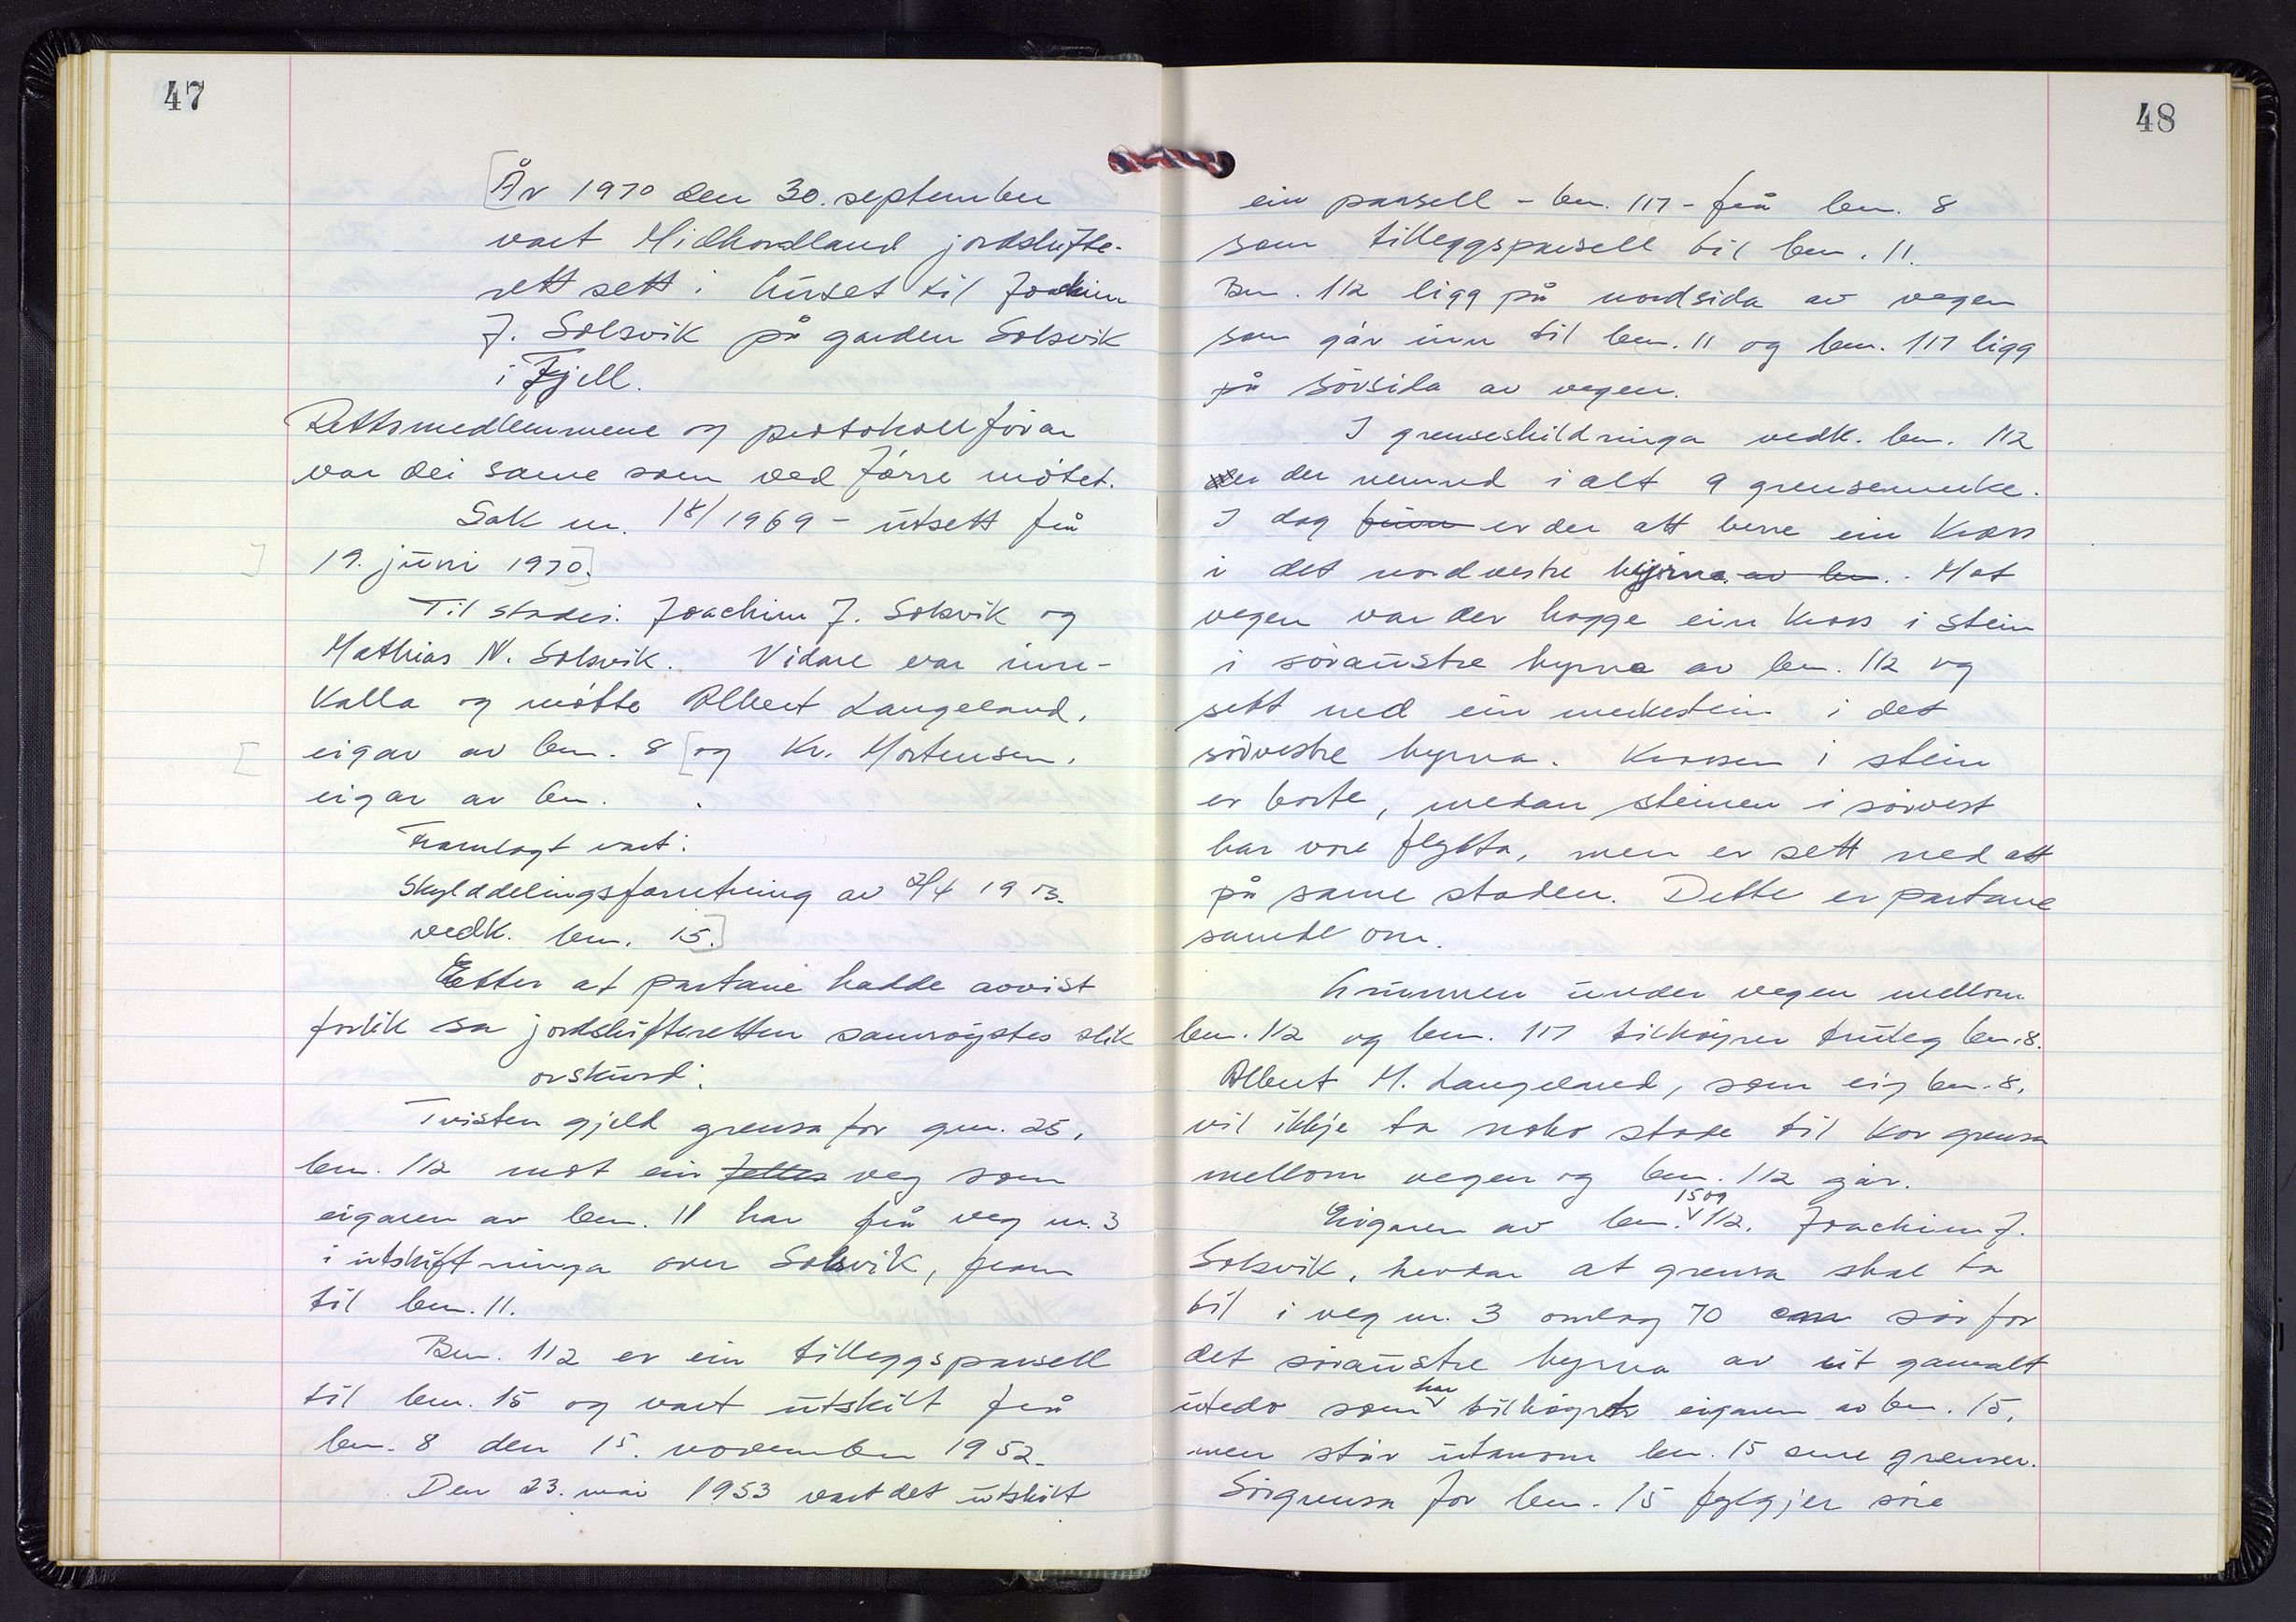 47
[År 1970 den 30. september
vart Midhordland jordskifte-
rett sett i huset til Joachim
J. Solsvik på garden Solsvik
i Fjell.
Rettsmedlemmene og protokollførar
var dei same som ved førre møtet.
Sak nr. 18/1969 - utsett frå
] 19. juni 1970].
Til stades: Joachim J. Solsvik og
Mathias N. Solsvik. Vidare var inn-
kalla og møtte Albert Langeland,
[ eigar av bnr. 8 [og Kr. Mortensen,
eigar av bnr. .
Framlagt vart:
Skylddelingsforretning av 19
vedk. bnr. 15.]
Etter at partane hadde avvist
forlik sa jordskifteretten samrøystes slik
orskurd:
Tvisten gjeld grensa for gnr. 25,
bnr. 112 mot ein felles veg som
eigaren av bnr. 11 har frå veg nr. 3
i utskiftninga over Solsvik, fram
til bnr. 11.
Bnr. 112 er ein tilleggsparsell
til bnr. 15 og vart utskilt frå
bnr. 8 den 15. november 1952.
Den 23. mai 1953 vart det utskilt
48
ein parsell - bnr. 117 - frå bnr. 8
som tilleggsparsell til bnr. 11.
Bnr. 112 ligg på nordsida av vegen
som går inn til bnr. 11 og bnr. 117 ligg
på sørsida av vegen.
I grenseskildringa vedk. bnr. 112
er der nemnd i alt 9 grensemerke.
I dag finn er der att berre ein kross
i det nordvestre hyrna av bnr. . Mot
vegen var der hogge ein kross i stein
i søraustre hyrna av bnr. 112 og
sett ned ein merkestein i det
sørvestre hyrna. Krossen i stein
er borte, medan steinen i sørvest
har vore flytta, men er sett ned att
på same staden. Dette er partane
samde om.
Grunnen under vegen mellom
bnr. 112 og bnr. 117 tilhøyrer truleg bnr. 8.
Albert M. Langeland, som eig bnr. 8,
vil ikkje ta noko stode til kor grensa
mellom vegen og bnr. 112 går.
Eigaren av bnr. 15 og 112, Joachim J.
Solsvik, hevdar at grensa skal ta
til i veg nr. 3 omlag 70 cm sør for
det søraustre hyrna av eit gamalt
utedo som har tilhøyrt eigaren av bnr. 15,
men står utanom bnr. 15 sine grenser.
Sørgrensa for bnr. 15 fylgjer søre